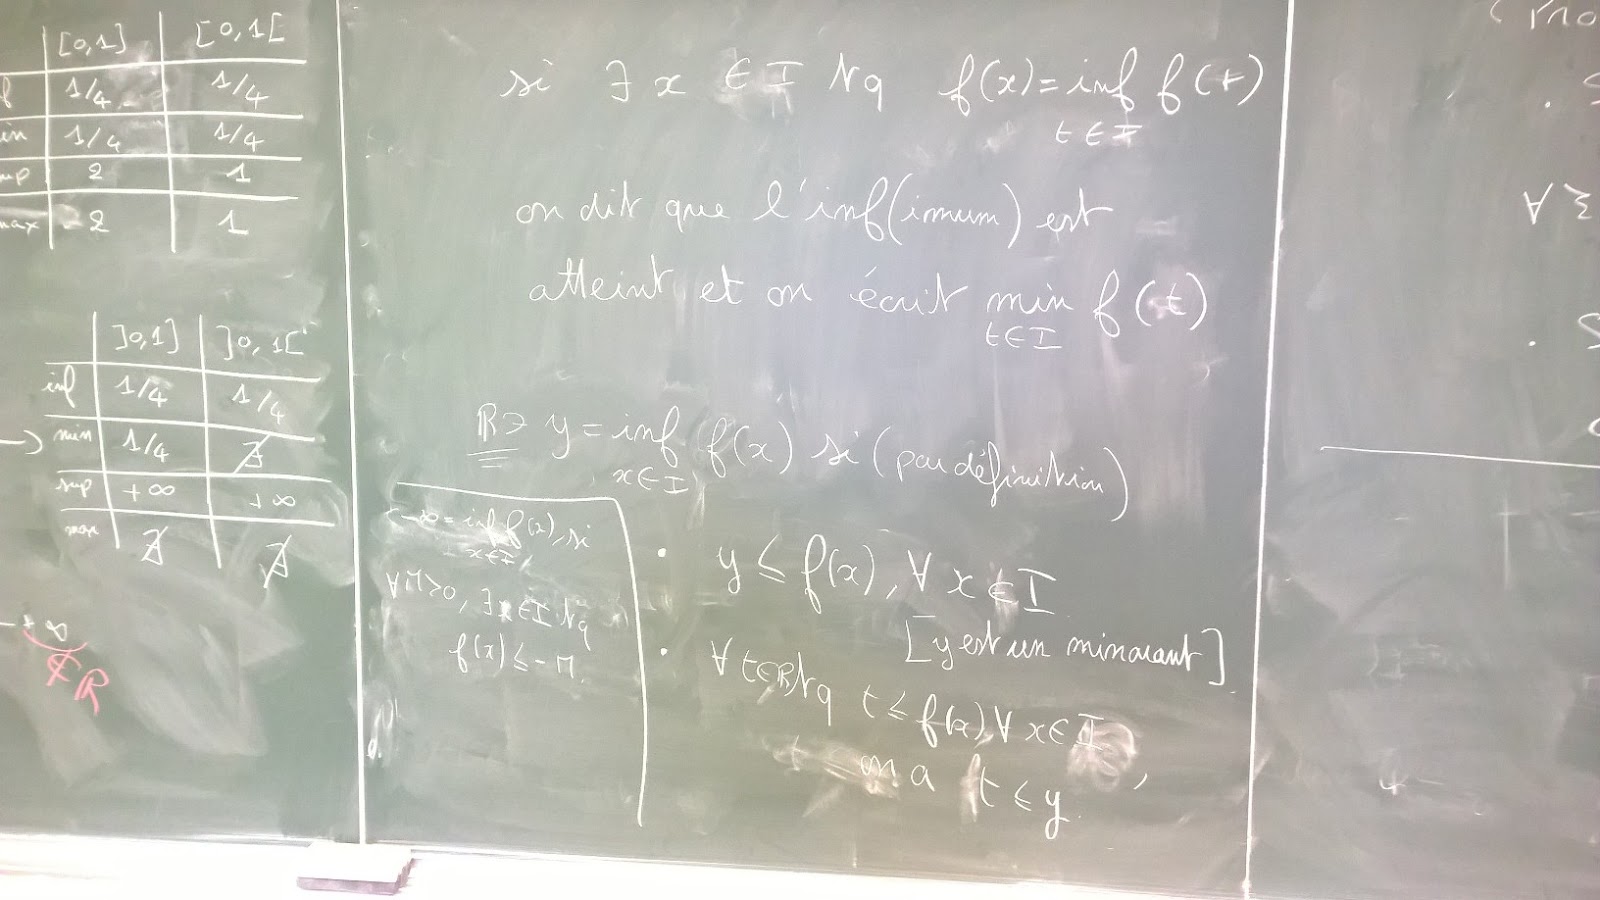 [0,1] [0,1[
1/4 1/4
in 1/4 1/4
up 2 1
max 2 1
]0,1] ]0,1[
inf 1/4 1/4
→ min 1/4 ∄
sup +∞ +∞
max ∄ ∄
+∞
∉ R
si ∃ x ∈ I tq f(x) = inf f(t)
t ∈ I
on dit que l'inf(imum) est
atteint et on écrit min f(t)
t∈I
ℝ∋ y = inf f(x) si (par définition)
x∈I
-∞ = inf f(x), si
x∈I
∀M>0, ∃x∈I tq
f(x) ≤ -M.
• y ≤ f(x), ∀ x ∈ I
[y est un minorant].
• ∀ t∈ℝ tq t ≤ f(x), ∀ x∈I,
on a t ≤ y.
∀ ξ